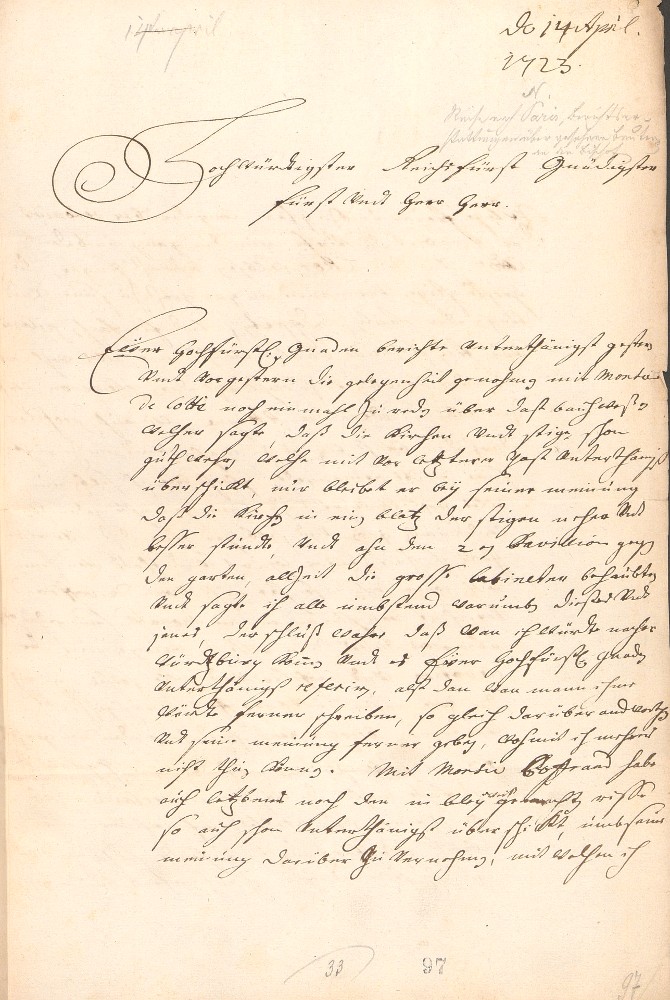 14 April
De 14 April.
1723.
Reise nach Paris,
Hochwürdigster Reichsfürst Gnädigster
fürst Undt Herr Herr.
Eüer Hochfürstl. Gnaden berichte Unterthänigst gestern
Undt Vorgestern die gelegenheit genohmen mit Monsu
de Cotte noch ein mahl zu reden über dass bauwesen
welcher sagte, dass die Kirchen Undt stigen schon
guth wehren welche mit Vor letzterer Post Unterthänigst
überschickt, nur bleibet er bey seiner meinung
dass die Kirch in ein platz der stigen neher Undt
besser stündte, Undt ahn den 2 en Pavillion gegen
den garten, allzeit die grosse Cabineter behaubten
Undt sagte ich alle umbständ warumb dieses Undt
jenes, der schluß wahre daß wan ich würdte nacher
würtzburg Komen Undt es Eüer Hochfürstl. Gnaden
Unterthänigst referiren, alß dan wan mann ihme
würdte ferner schreiben, so gleich darüber andworthen
Undt seine meinung ferner geben, wohmit ich mehrers
nicht thun Könne. Mit Monsu Boffrand habe
auch letztens noch den in bley gemachten riss
so auch schon Unterthänigst über schickt, umb seine
meinung darüber zu Vernehmen, mit welchen ich
33 97
97